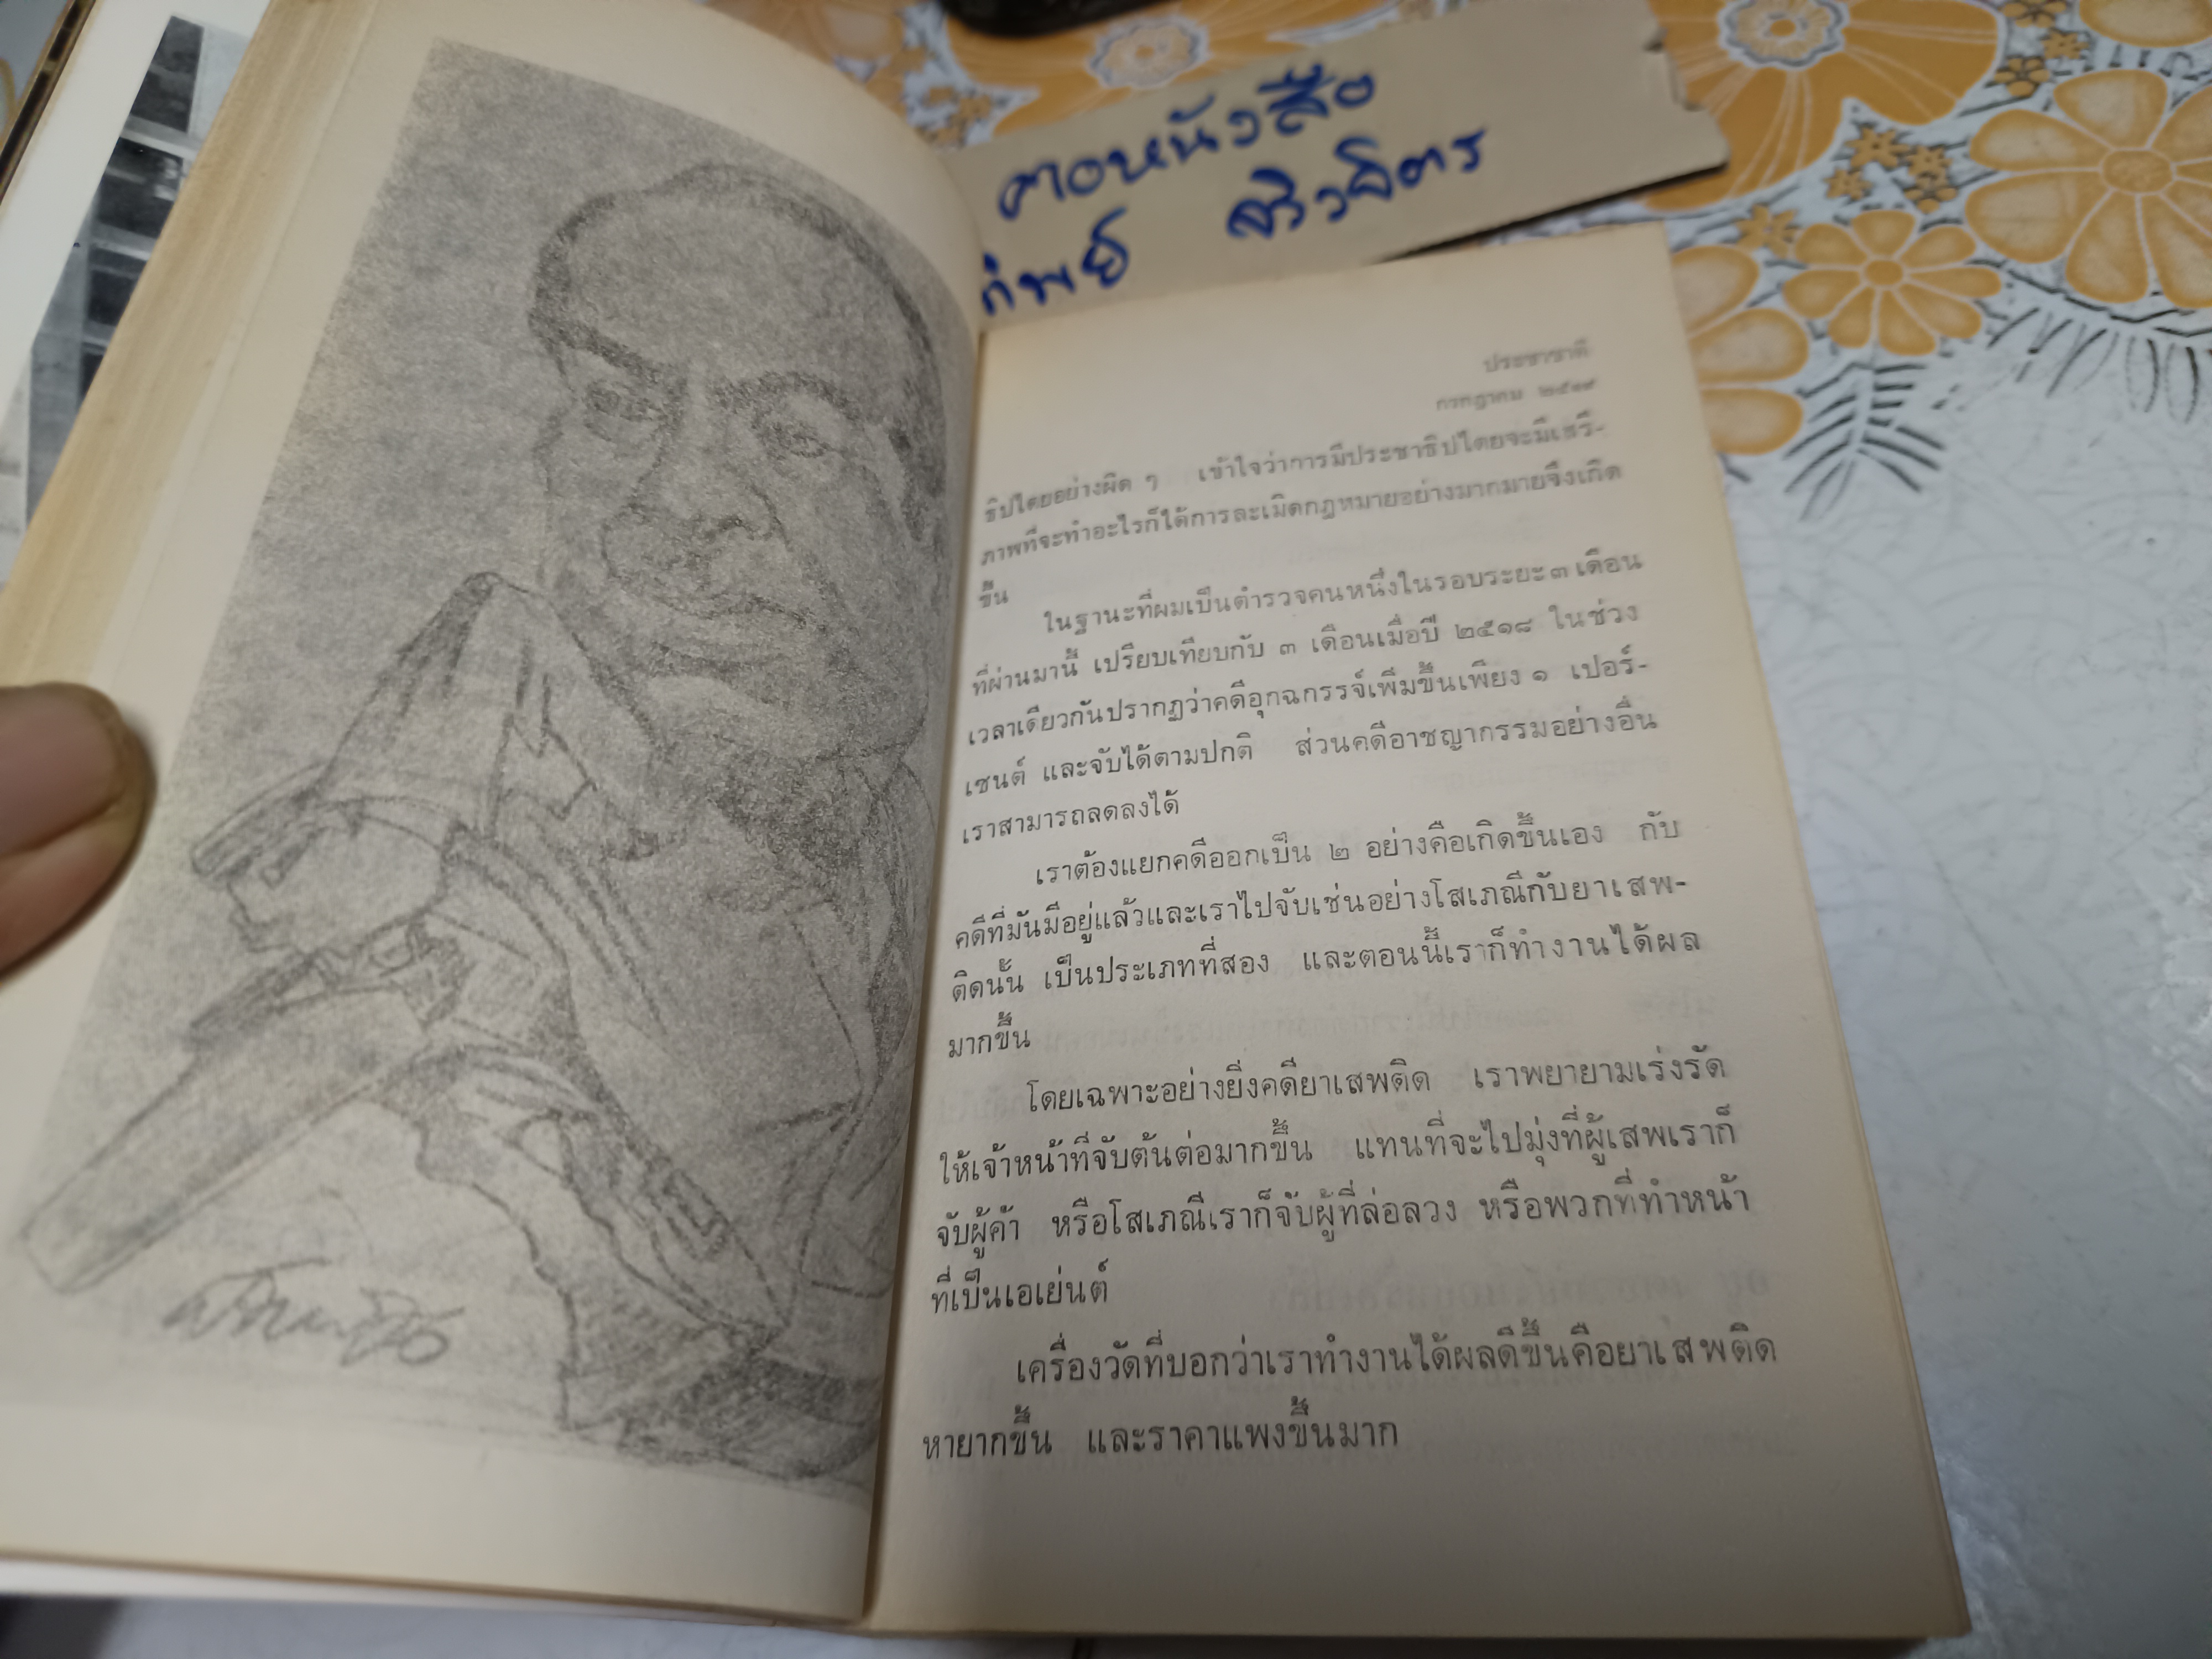 คอหนังสือ
ทิพย์ ศริวจิตร
ประชาชาติ
กรกฎาคม ๒๕๑๙
ธิปไตยอย่างผิด ๆ เข้าใจว่าการมีประชาธิปไตยจะมีเสรี-
ภาพที่จะทำอะไรก็ได้การละเมิดกฎหมายอย่างมากมายจึงเกิด
ขึ้น
ในฐานะที่ผมเป็นตำรวจคนหนึ่งในรอบระยะ ๓ เดือน
ที่ผ่านมานี้ เปรียบเทียบกับ ๓ เดือนเมื่อปี ๒๕๑๘ ในช่วง
เวลาเดียวกันปรากฏว่าคดีอุกฉกรรจ์เพิ่มขึ้นเพียง ๑ เปอร์-
เซนต์ และจับได้ตามปกติ ส่วนคดีอาชญากรรมอย่างอื่น
เราสามารถลดลงได้
เราต้องแยกคดีออกเป็น ๒ อย่างคือเกิดขึ้นเอง กับ
คดีที่มันมีอยู่แล้วและเราไปจับเช่นอย่างโสเภณีกับยาเสพ-
ติดนั้น เป็นประเภทที่สอง และตอนนี้เราก็ทำงานได้ผล
มากขึ้น
โดยเฉพาะอย่างยิ่งคดียาเสพติด เราพยายามเร่งรัด
ให้เจ้าหน้าที่จับต้นต่อมากขึ้น แทนที่จะไปมุ่งที่ผู้เสพเราก็
จับผู้ค้า หรือโสเภณีเราก็จับผู้ที่ล่อลวง หรือพวกที่ทำหน้า
ที่เป็นเอเย่นต์
เครื่องวัดที่บอกว่าเราทำงานได้ผลดีขึ้นคือยาเสพติด
หายากขึ้น และราคาแพงขึ้นมาก